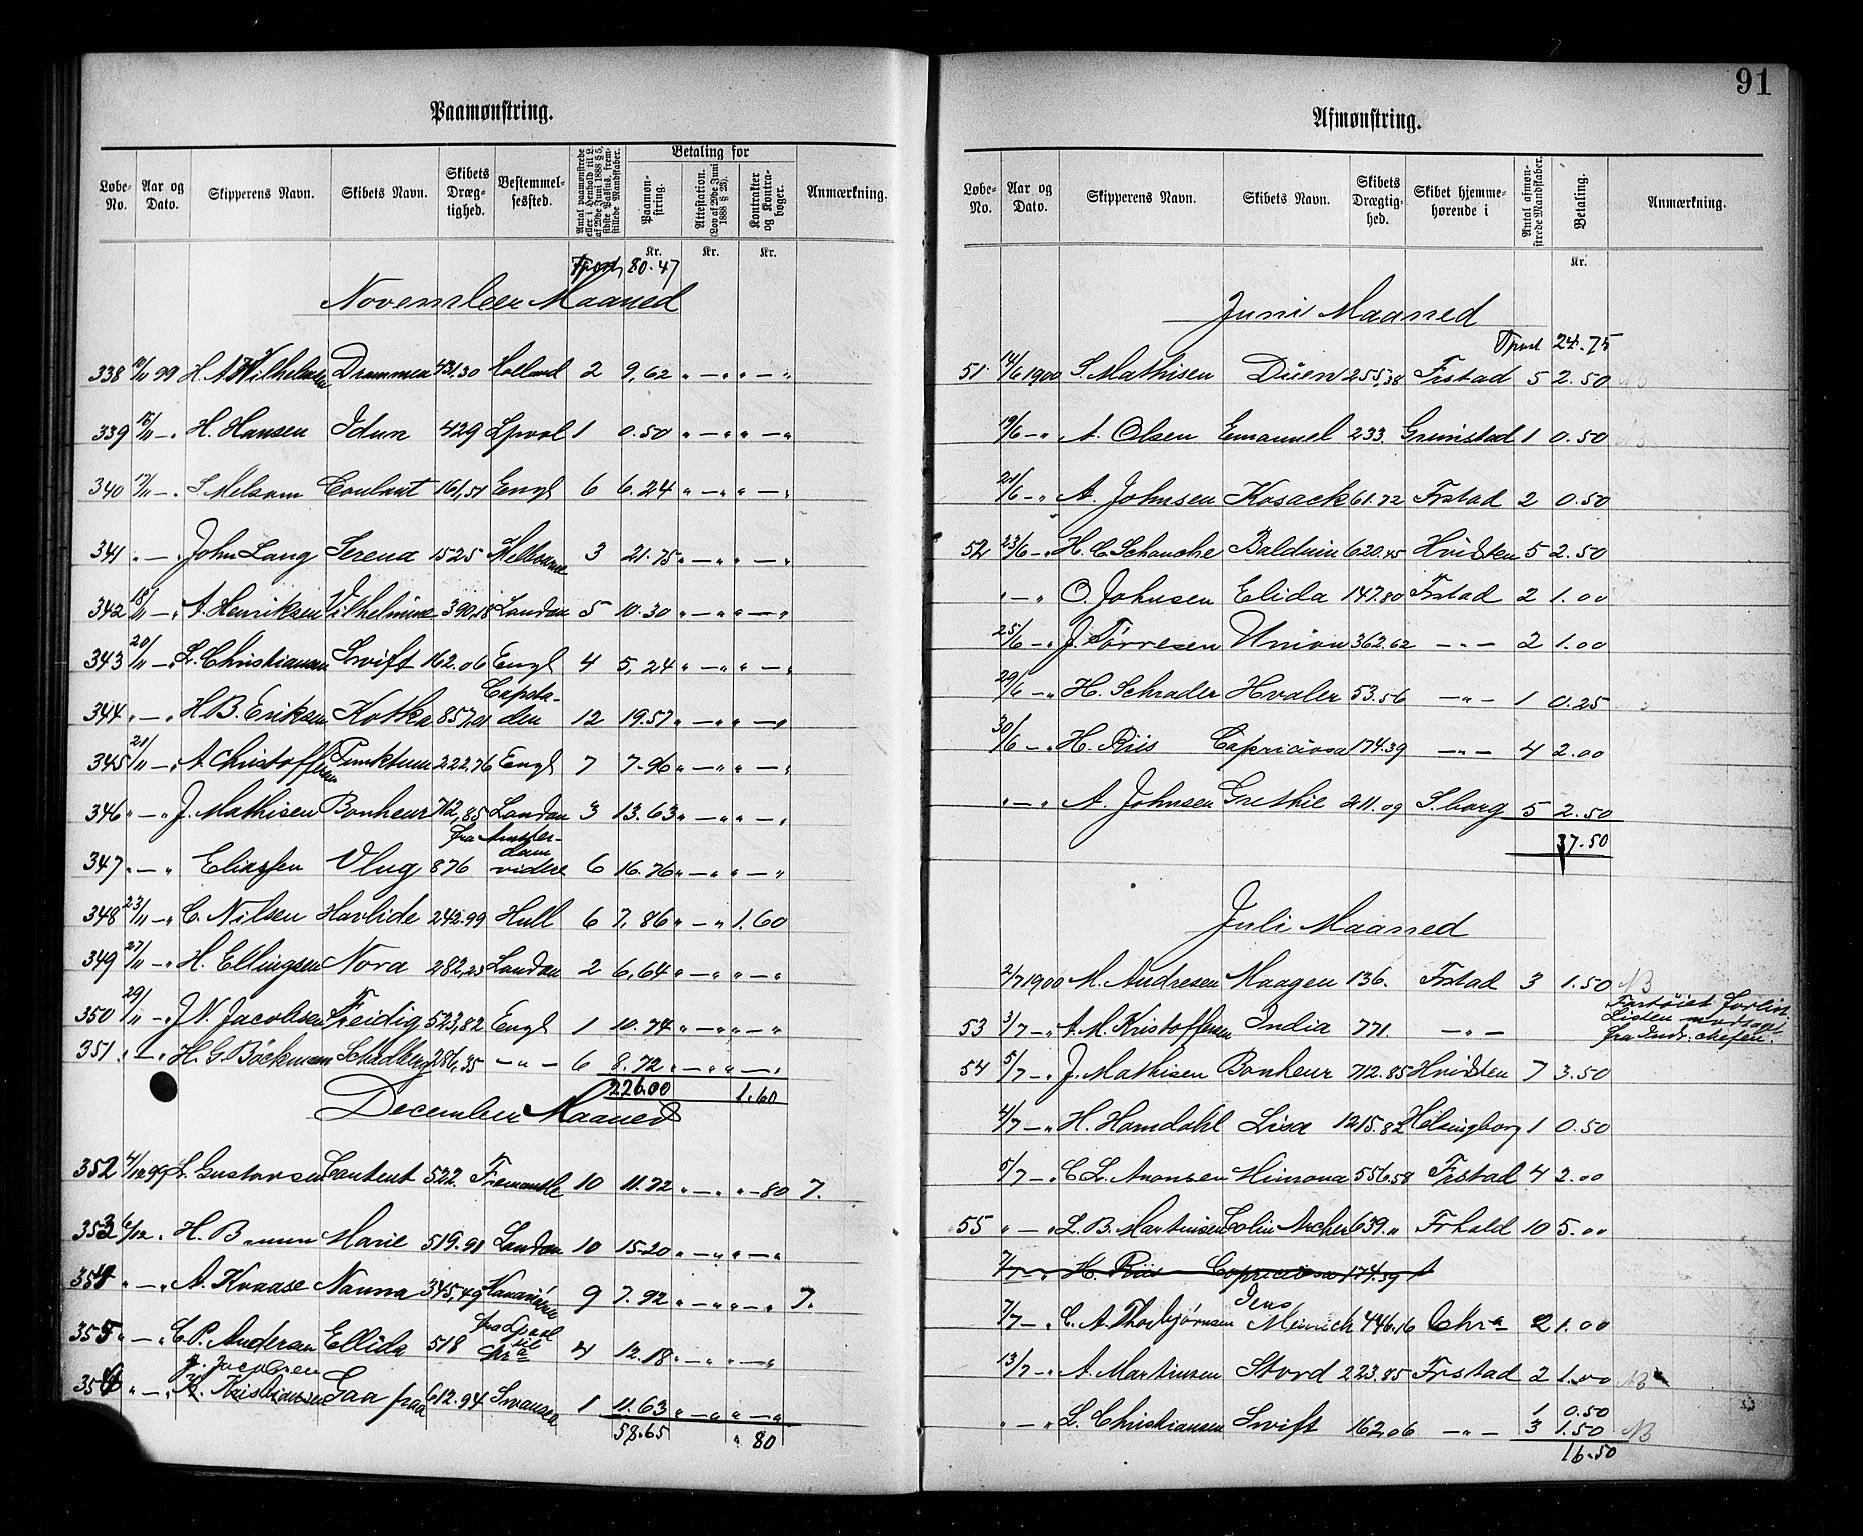 91
Paamønstring.
Løbe-No. Aar og Dato. Skipperens Navn. Skibets Navn. Skibets Dræg-tighed. Bestemmel-sessted. Antal paamønstrede eller i Henhold til L. af 29de Juni 1888 § 5, sidste Passus, frem-stillede Mandskaber. Betaling for Paamøn-string. Attestation. (Lov af 29de Juni 1888 § 23). Kontrakter og Kontra-bøger. Anmærkning.
Kr. Kr. Kr.
Tport 80.47
November Maaned
338 11/11 99 H. A. Wilhelmsen Drammen 431,30 Holland 2 9,62 " — " " — "
339 15/11 — " H. Hansen Idun 429 Lpool 1 0.50 " — " " — "
340 17/11 — " S Melsom Coulant 161,51 Engl 6 6.24 " — " " — "
341 " — " John Lang Serena 1525 Melbourne 3 21.75 " — " " — "
342 18/11 — " A. Henriksen Vilhelmine 390,18 London 5 10.30 " — " " — "
343 20/11 — " L. Christiansen Swift 162.06 Engl 4 5,24 " — " " — "
344 " — " H. B. Eriksen Kotka 857,01 Capsta-den 12 19.57 " — " " — "
345 21/11 — " A Christoffersen Punktum 222,76 Engl 7 7.96 " — " " — "
346 " — " J. Mathisen Bonheur 712,85 London 3 13.63 " — " " — "
fra Amster-dam
347 " — " Eliassen Vlug 876 videre 6 16.76 " — " " — "
348 23/11 — " C. Nilsen Havlide 242.99 Hull 6 7,86 " — " 1.60
349 27/11 — " H. Ellingsen Nora 282,25 London 2 6,64 " — " " — "
350 29/11 — " J N. Jacobsen Freidig 523,82 Engl 1 10.74 " — " " — "
351 " — " H. G. Bäckman 286,35 — " — 6 8.72 " — " " — "
226.00 1.60
December Maaned
352 4/12 99 L. Gustavsen 522. Fremantle 10 11.72 " — " " 80 7.
353 6/12 " H. B Marie 519.91 London 10 15.20 " — " " — "
354 " — " A. Kraase Nanna 345,49 9 7.92 " — " " — " 7.
355 " — " C. P. Andersen Ellida 518 fra Lpool til Chr a 4 12.18 " — " " — "
J. Jacobsen
356 " — " K. Kristiansen Gaa paa 612.94 Swansea 1 11.63 " — " " — "
58.65 " 80
Afmønstring.
Løbe-No. Aar og Dato. Skipperens Navn. Skibets Navn. Skibets Drægtig-hed. Skibet hjemme-hørende i Antal afmøn-strede Mandskaber. Betaling. Anmærkning.
Kr.
Juni Maaned
Tport 24.75
51. 14/6 1900 S. Mathisen Duen 255,38 Frstad 5 2.50 NB
19/6 — " A. Olsen Emanuel 233. Grimstad 1 0.50 NB
21/6 — " A. Johnsen Kosack 61.72 Frstad 2 0.50
52 23/6 — " H. C. Schanche Balduin 620.45 Hvidsten 5 2.50
" — " O. Johnsen Elida 147.80 Frstad 2 1.00
25/6 — " J. Tørresen Union 362.62 — " — 2 1.00
29/6 — " H. Schrader Hvaler 53.56 — " — 1 0.25
30/6 — " H. Riis Capriciosa 174.39 — " — 4 2.00
" — " A. Johnsen Grethie 211.09 S.borg 5 2.50
37.50
Juli Maaned
2/7 1900 M. Andresen Maagen 136. Frstad 3 1.50 NB
53 3/7 — " A. M. Kristoffersen India 771. — " — Fartøiet forlist. Listen modtaget fra Indr. chefen.
54 5/7 — " J. Mathisen Bonheur 712.85 Hvidsten 7 3.50
4/7 — " H. Hamdahl Lisa 1215.82 Helsingborg 1 0.50
5/7 — " C L. Aronsen Mimona 556.58 Frstad 4 2.00
55 " — " L. B. Martinsen Colin Archer 639. " Frhald 10 5.00
7/7 — " H. Riis Capriciosa 174.39 1
7/7 — " C. A. Thorbjørnsen Jens Meinich 446.16 Chr a 2 1.00
13/7 — " A. Martinsen Stord 223.85 Frstad 2 1.00 NB
1 0.50
" — " L. Christiansen Swift 162.06 — " — 3 1.50 NB
16.50